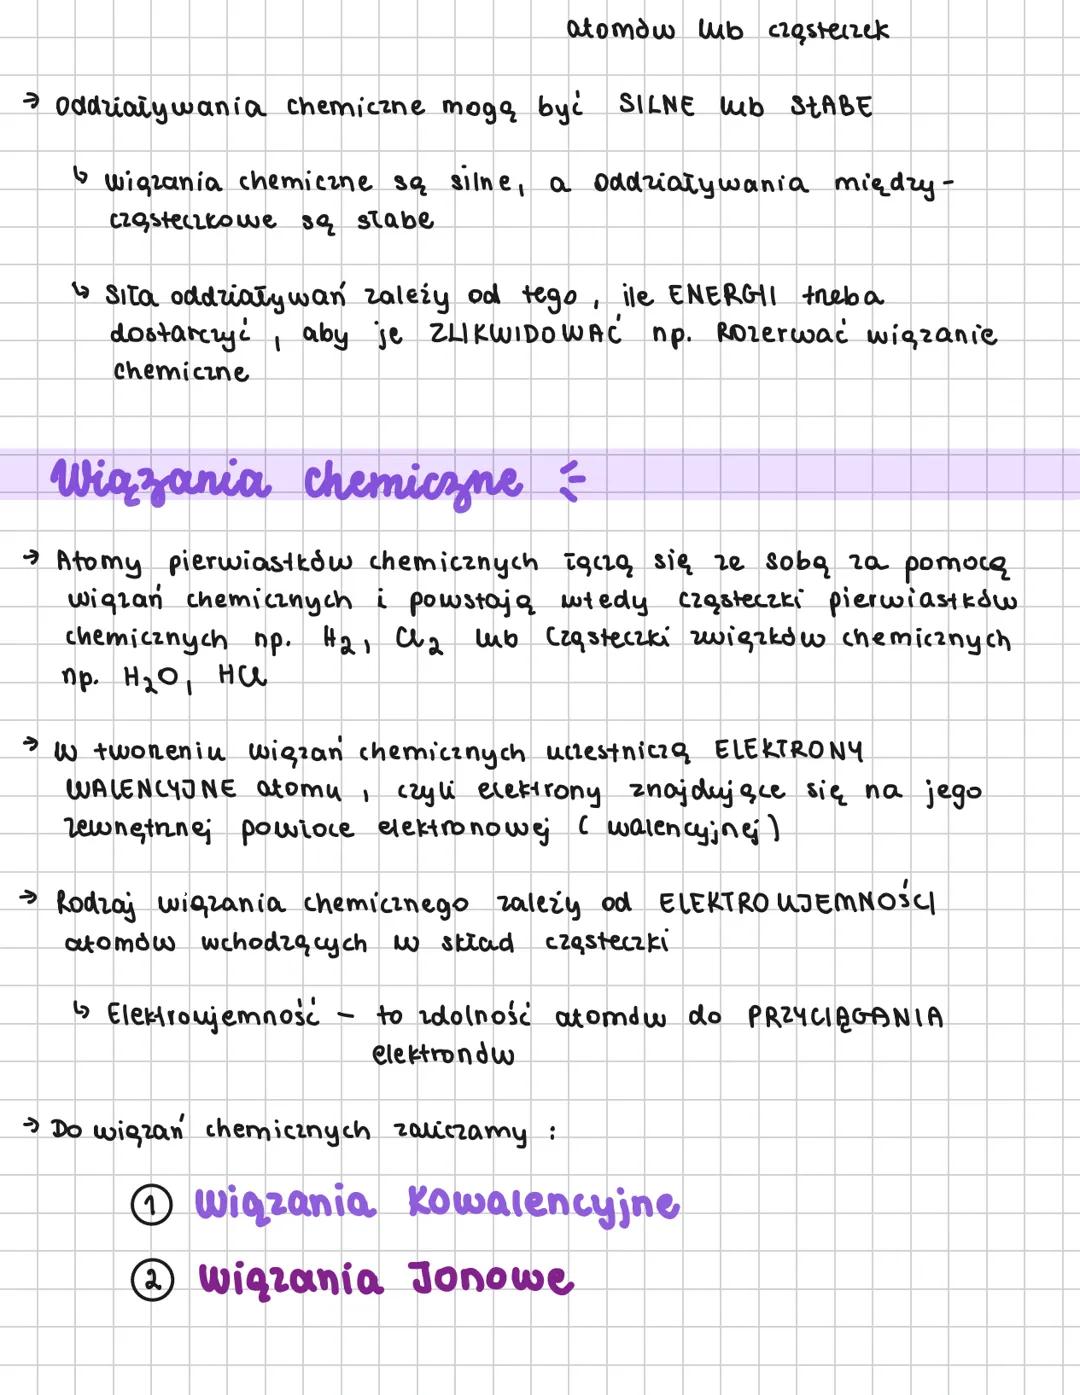 atomów lub cząsteczek
→ Oddziaływania chemiczne mogą być SILNE lub SŁABE
↳ Wiązania chemiczne są silne, a oddziaływania między-
cząsteczkowe są słabe
↳ Siła oddziaływań zależy od tego, ile ENERGII trzeba
dostarczyć, aby je ZLIKWIDOWAĆ np. Rozerwać wiązanie
chemiczne
Wiązania chemiczne
→ Atomy pierwiastków chemicznych łączą się ze sobą za pomocą
wiązań chemicznych i powstają wtedy cząsteczki pierwiastków
chemicznych np. H₂, Cl₂ lub Cząsteczki związków chemicznych
np. H₂O, HCl
→ W tworzeniu wiązań chemicznych uczestniczą ELEKTRONY
WALENCYJNE atomu, czyli elektrony znajdujące się na jego
zewnętrznej powłoce elektronowej (walencyjnej)
→ Rodzaj wiązania chemicznego zależy od ELEKTROUJEMNOŚCI
atomów wchodzących w skład cząsteczki
↳ Elektroujemność - to zdolność atomów do PRZYCIĄGANIA
elektronów
→ Do wiązań chemicznych zaliczamy :
① Wiązania Kowalencyjne
② Wiązania Jonowe